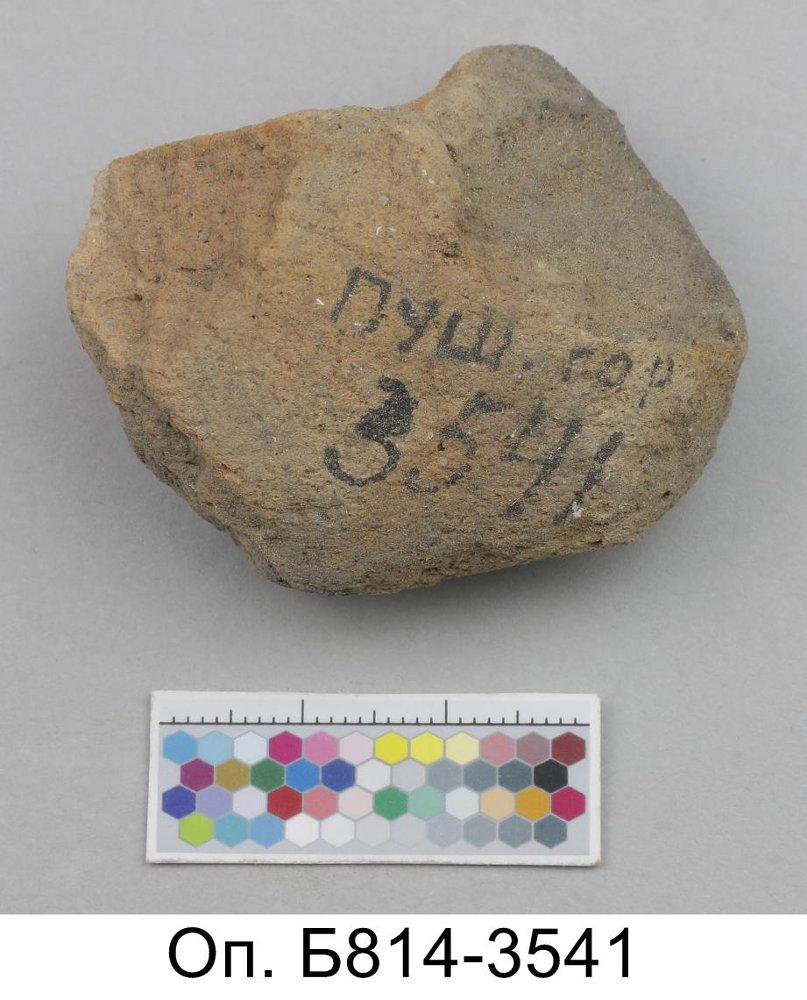 Пуш. гор
3541
Оп. Б814-3541